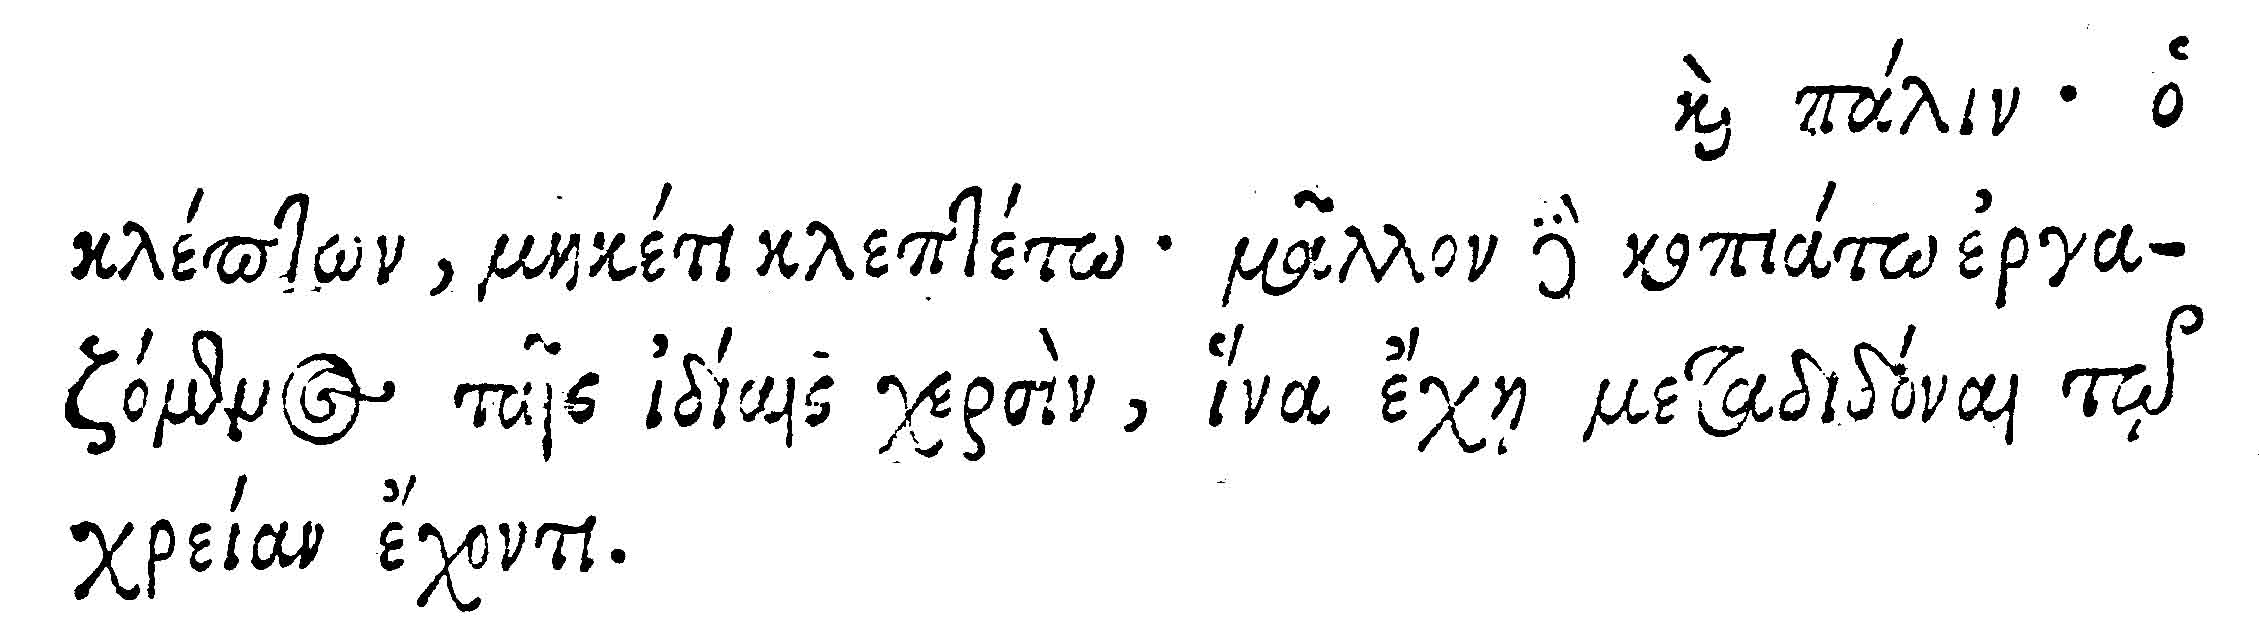 καὶ πάλιν· ὁ
κλέπτων, μηκέτι κλεπτέτω· μᾶλλον δὲ κοπιάτω ἐργα-
ζόμενος ταῖς ἰδίαις χερσὶν, ἵνα ἔχῃ μεταδιδόναι τῷ
χρείαν ἔχοντι.